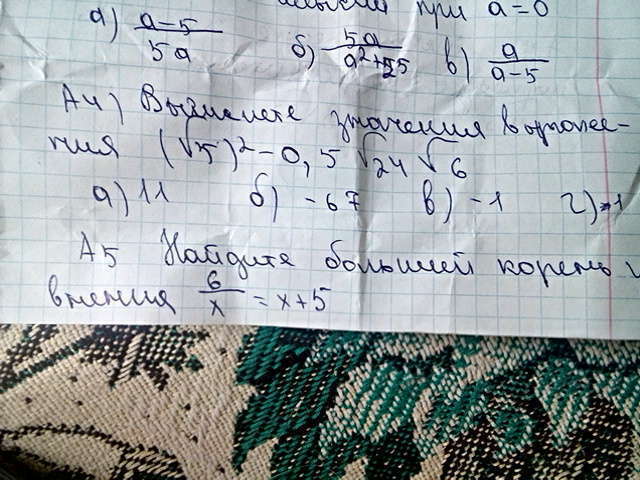 при a=0
а) a-5/5a б) 5a/a²+25 в) a/a-5
А4) Вычислите значения выраже-
ния (√5)²-0,5√24√6
а) 11 б) -67 в) -1 г) 1
А5 Найдите больший корень
внения 6/x = x+5